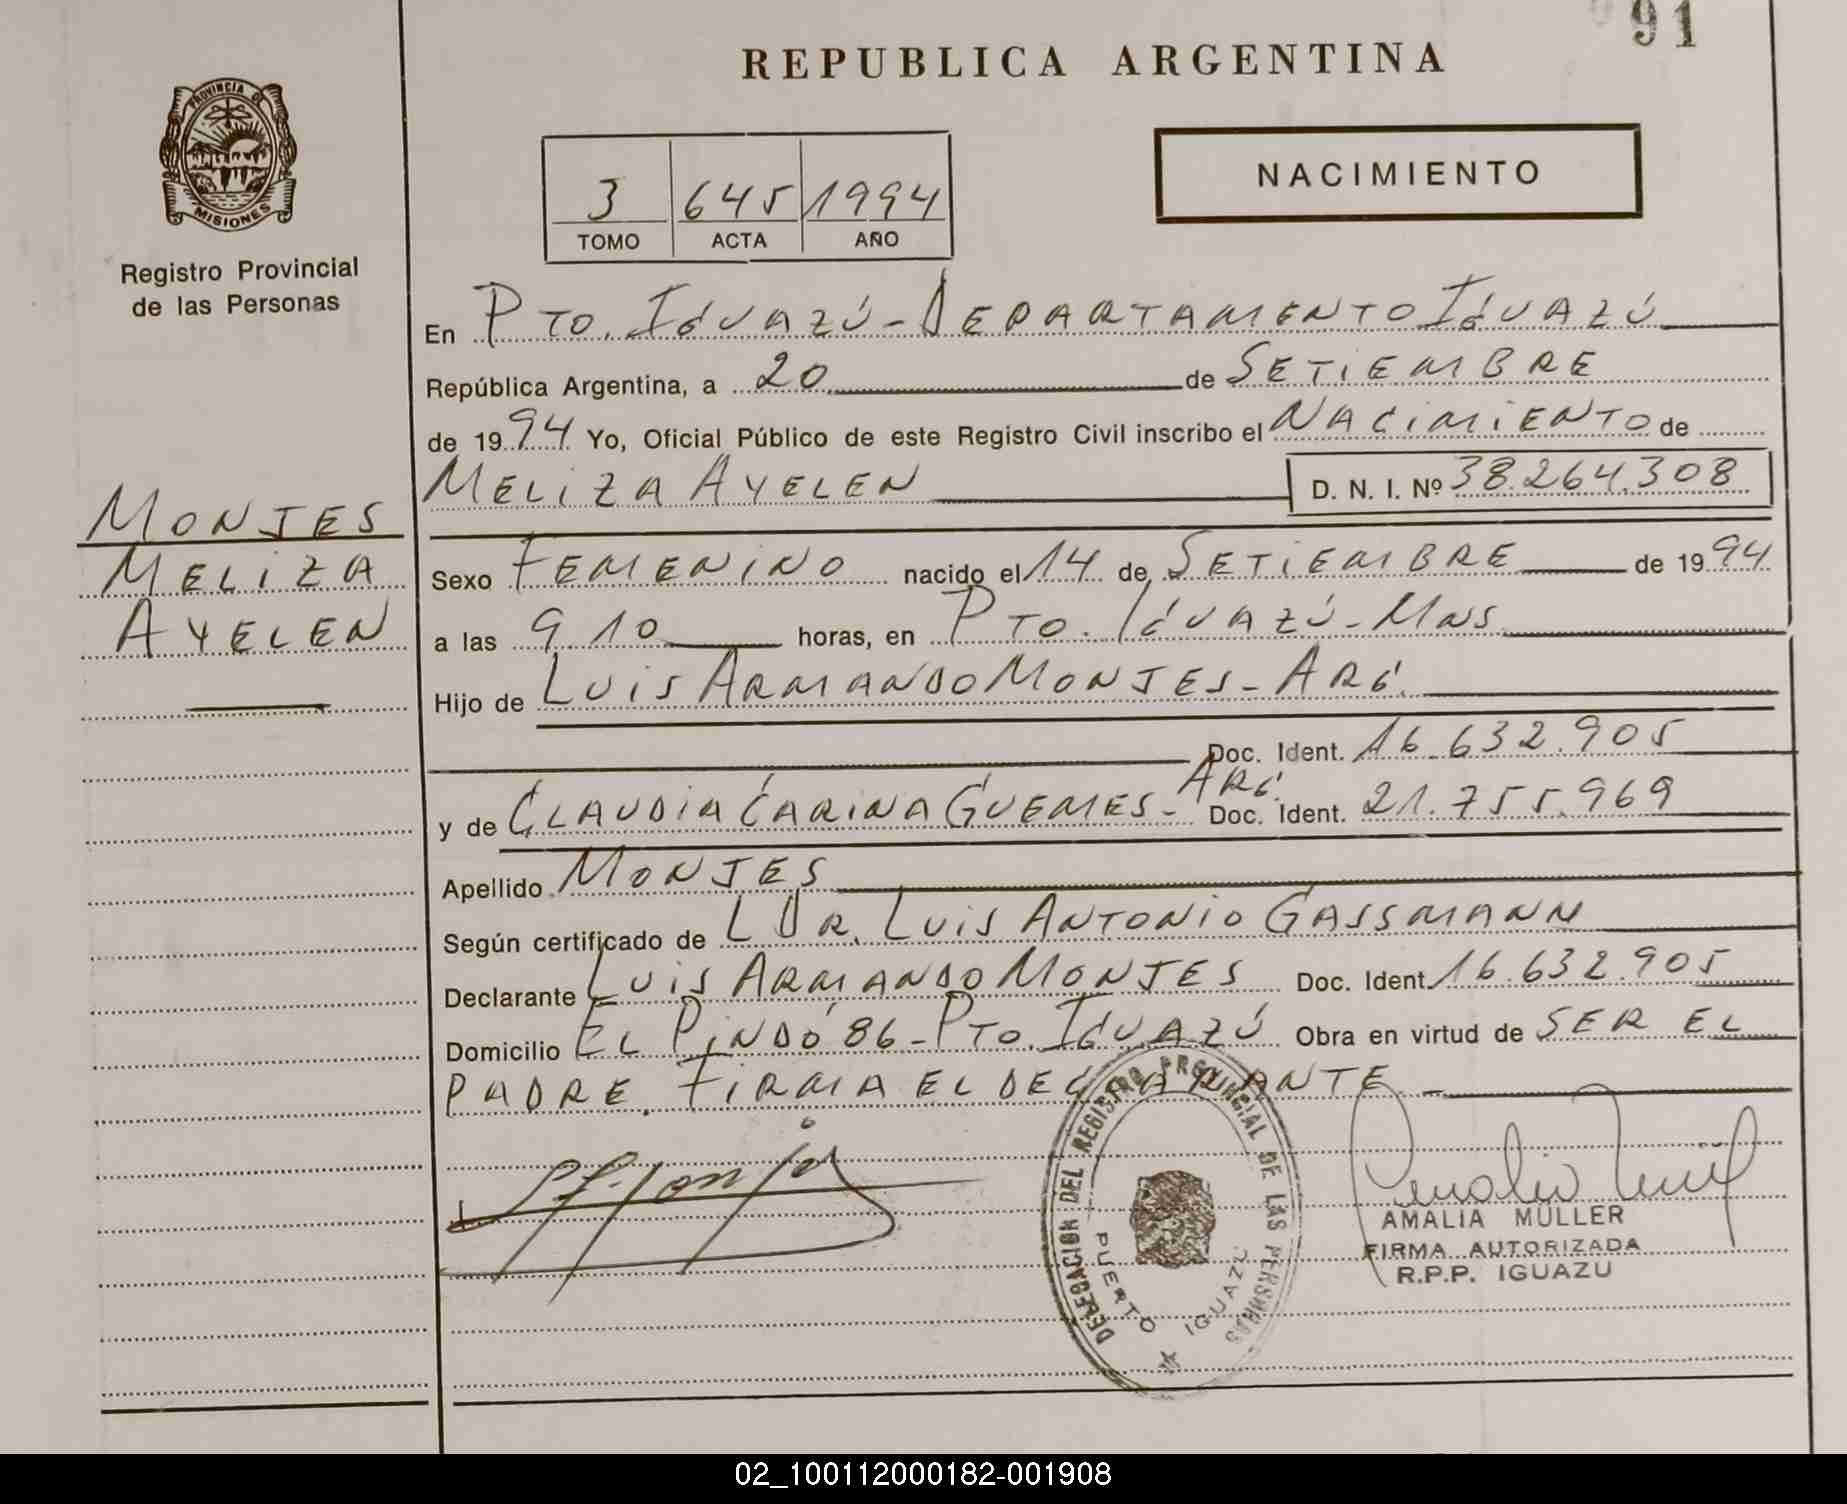 91
REPUBLICA ARGENTINA
PROVINCIA DE
MISIONES
Registro Provincial
de las Personas
3 645 1994
TOMO ACTA AÑO
NACIMIENTO
En PTO. IGUAZÚ - DEPARTAMENTO IGUAZÚ
República Argentina, a 20 de SETIEMBRE
de 1994 Yo, Oficial Público de este Registro Civil inscribo el NACIMIENTO de
MELIZA AYELEN D. N. I. Nº 38.264.308
MONJES
MELIZA
AYELEN
Sexo FEMENINO nacido el 14 de SETIEMBRE de 1994
a las 9.10 horas, en PTO. IGUAZÚ - MNS
Hijo de LUIS ARMANDO MONJES - ARG.
Doc. Ident. 16.632.905
y de CLAUDIA CARINA GUEMES - ARG. Doc. Ident. 21.755.969
Apellido MONJES
Según certificado de L DR. LUIS ANTONIO GASSMANN
Declarante LUIS ARMANDO MONJES Doc. Ident. 16.632.905
Domicilio EL PINDÓ 86 - PTO. IGUAZÚ Obra en virtud de SER EL
PADRE. FIRMA EL DECLARANTE
DELEGACION DEL REGISTRO PROVINCIAL DE LAS PERSONAS
PUERTO IGUAZU
AMALIA MULLER
FIRMA AUTORIZADA
R.P.P. IGUAZU
02_100112000182-001908